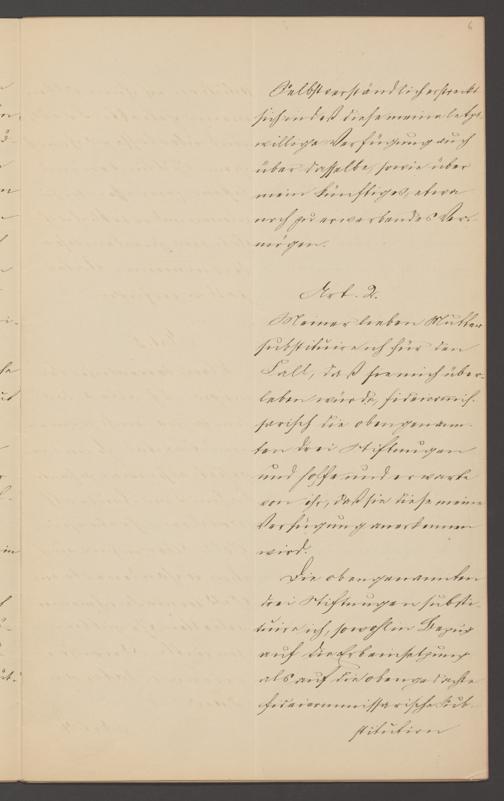 6
Selbstverständlich erstreckt
sich indeß diese meine letzt-
willige Verfügung auch
über dasselbe, sowie über
mein künftiges, etwa
noch zu erwerbendes Ver-
mögen.
Art. 2.
Meiner lieben Mutter
substituire ich für den
Fall, daß sie mich über-
leben würde, fideicommis-
sarisch die obengenann-
ten drei Stiftungen
und hoffe und erwarte
von ihr, daß sie diese meine
Verfügung anerkennen
wird.
Die obengenannten
drei Stiftungen substi-
tuire ich, sowohl in Bezug
auf die Erbeinsetzung
als auf die obengedachte
fideicommissarische Sub-
stitution